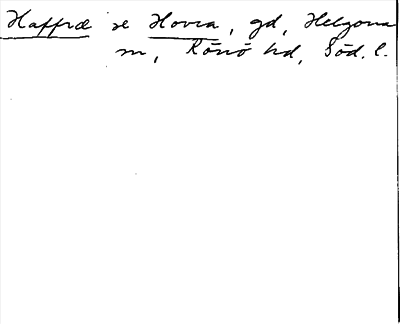 Haffræ se Hovra, gd, Helgona
sn, Rönö hd, Söd. l.